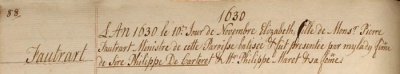 1630
88
L'An 1630 le 10me Jour de Novembre Elizabeth, fille de Monsr Pierre
Fautrart
Fautrart Ministre de cette Parroisse batisée & fut presentée par mylady fème
de Sire Philippe De Carteret & Mr Philippe Maret & sa fème